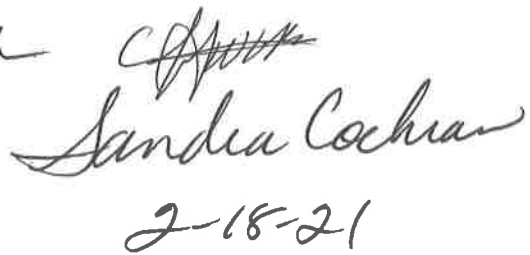 Sandra Cochran
2-18-21